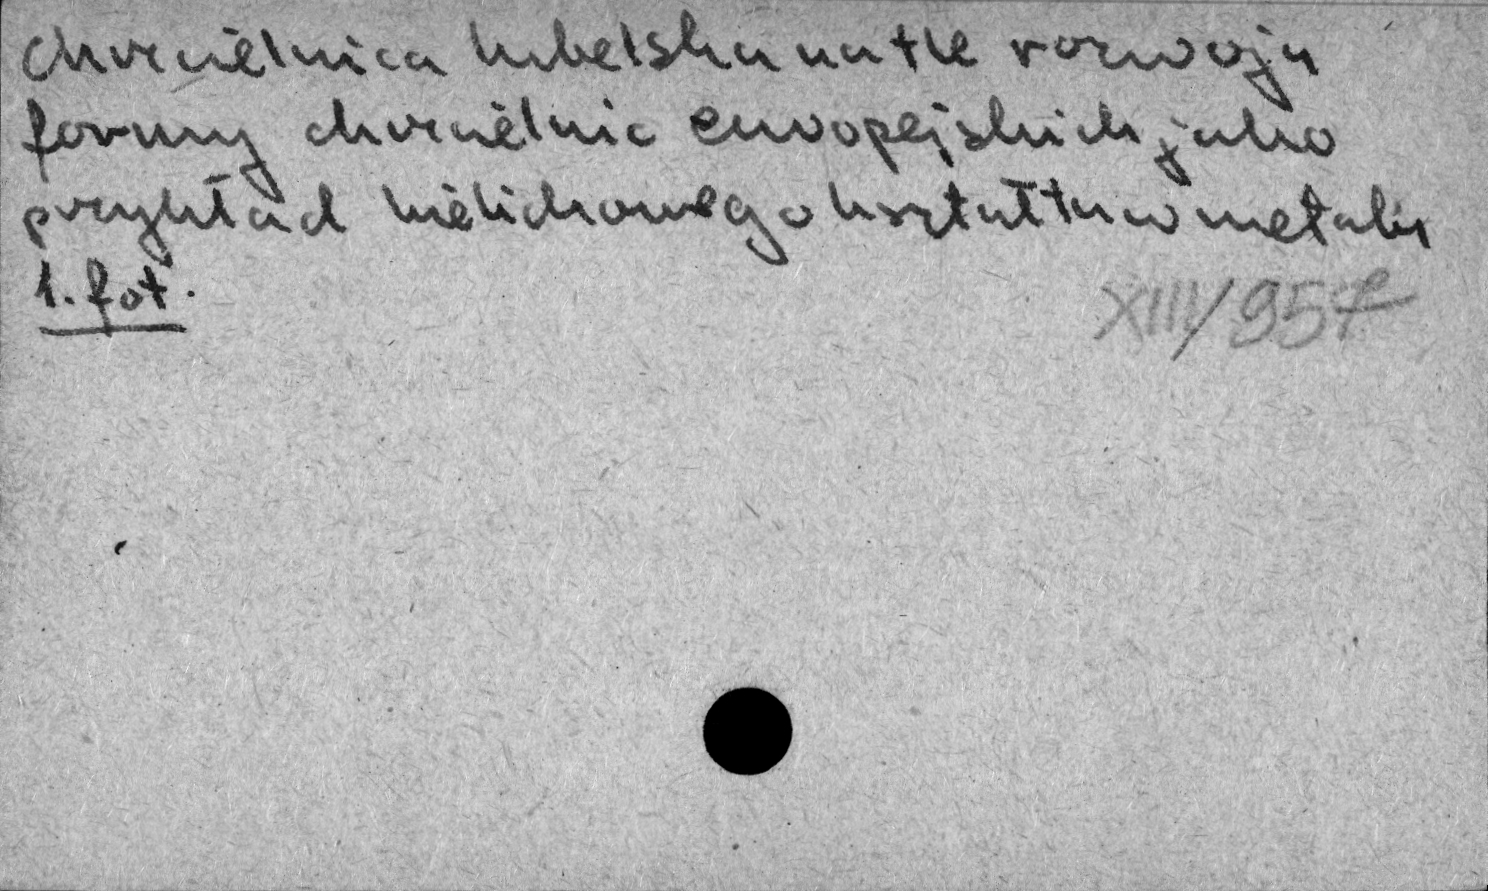 Chrzcielnica lubelska na tle rozwoju
formy chrzcielnic europejskich jako
przykład kielichowego kształtu w metalu
1. fot.
XIII/957